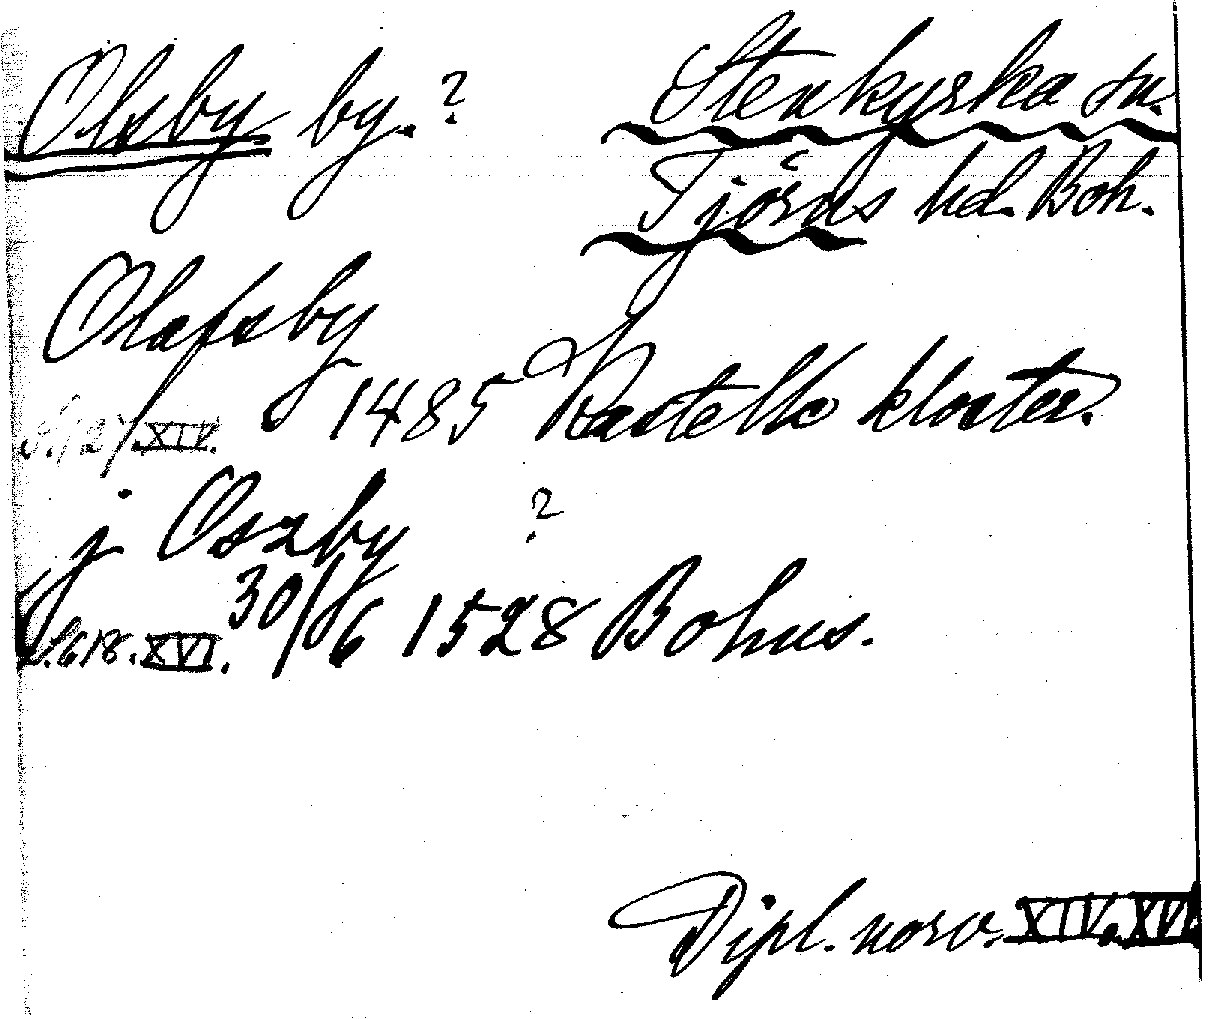 Olsby by.? Stenkyrka sn.
Tjörns hd. Boh.
Olafsby
S. 127. XIV. 1485 Kastelle kloster.
j Oszby ?
S. 618. XVI. 30/6 1528 Bohus.
Dipl. norv. XIV. XVI